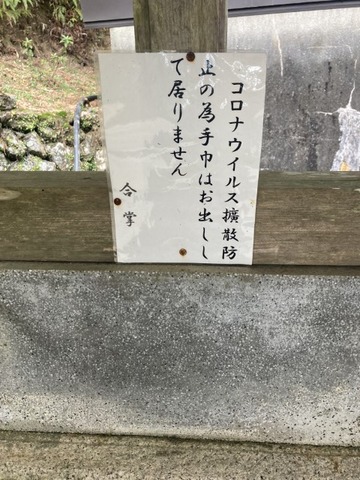 コロナウイルス擴散防
止の為手巾はお出しし
て居りません
合掌